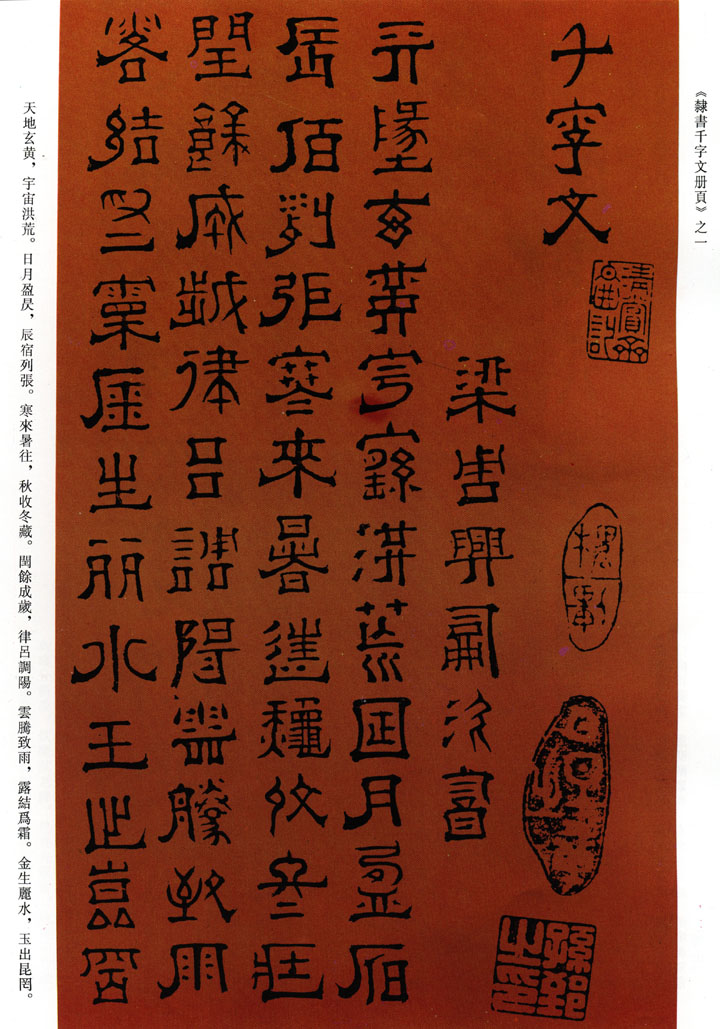 《隸書千字文册頁》之一
千字文
梁周興嗣次
天墬玄黃宇宙洪荒日月盈昃
辰宿列張寒來暑往秋收冬藏
閏餘成歲律呂調陽雲騰致雨
露結為霜金生麗水玉出崑岡
天地玄黄，宇宙洪荒。日月盈昃，辰宿列張。寒來暑往，秋收冬藏。閏餘成歲，律呂調陽。雲騰致雨，露結爲霜。金生麗水，玉出昆罔。